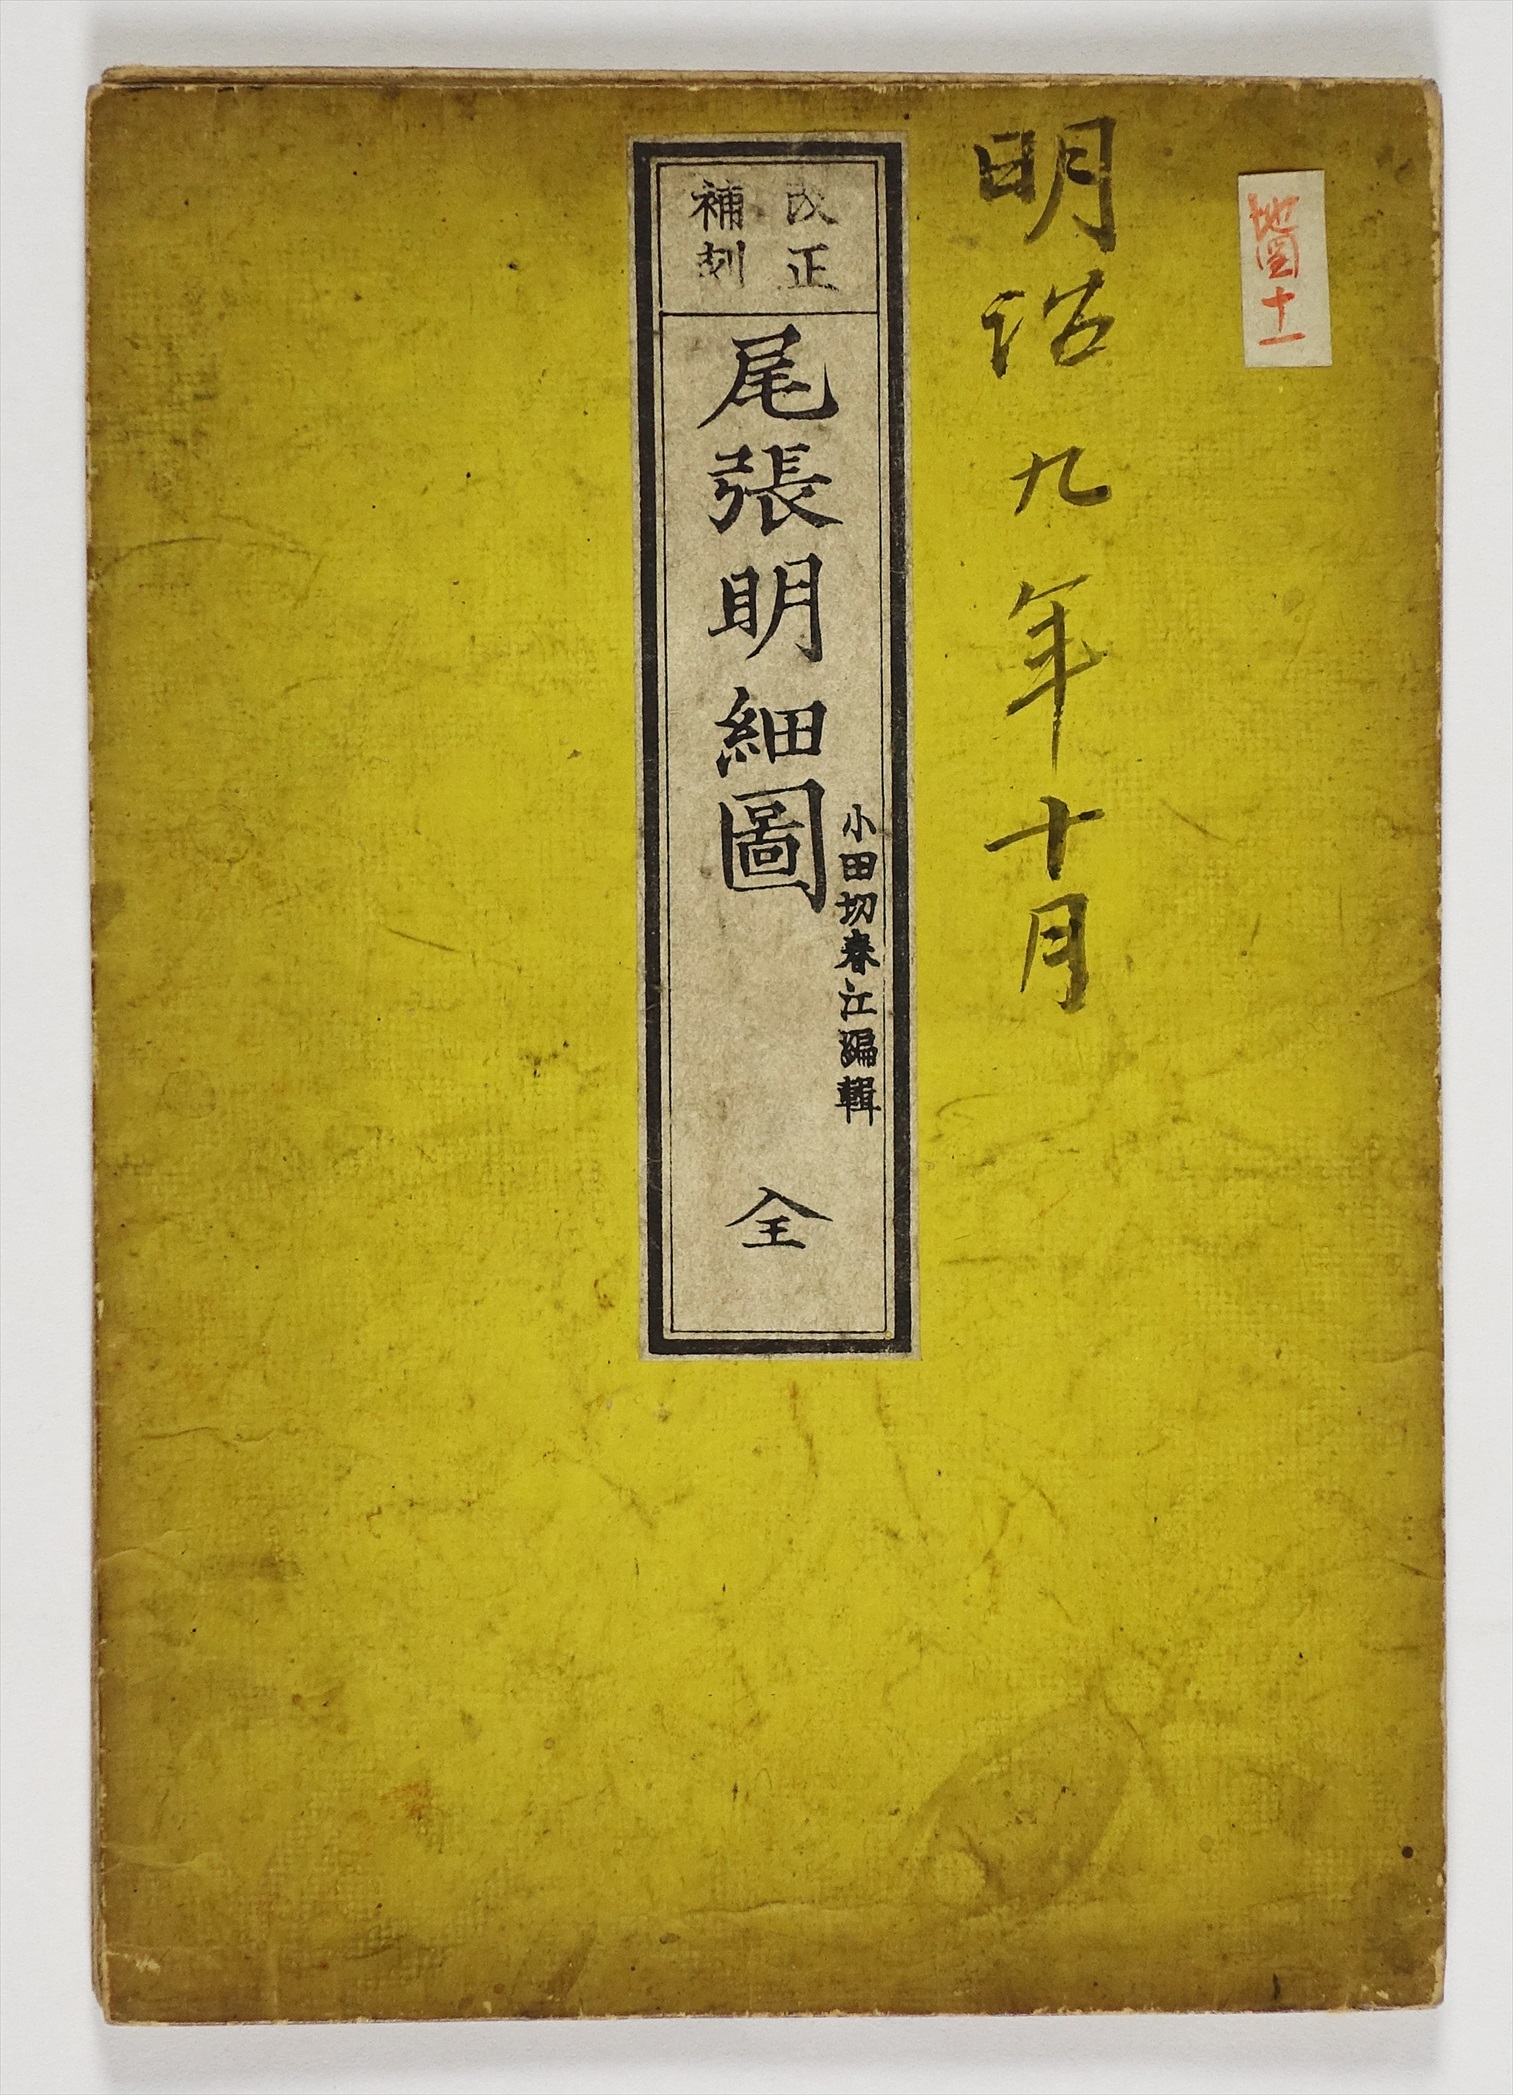 地圖十一
明治九年十月
改正
補刻
尾張明細圖
小田切春江編輯
全